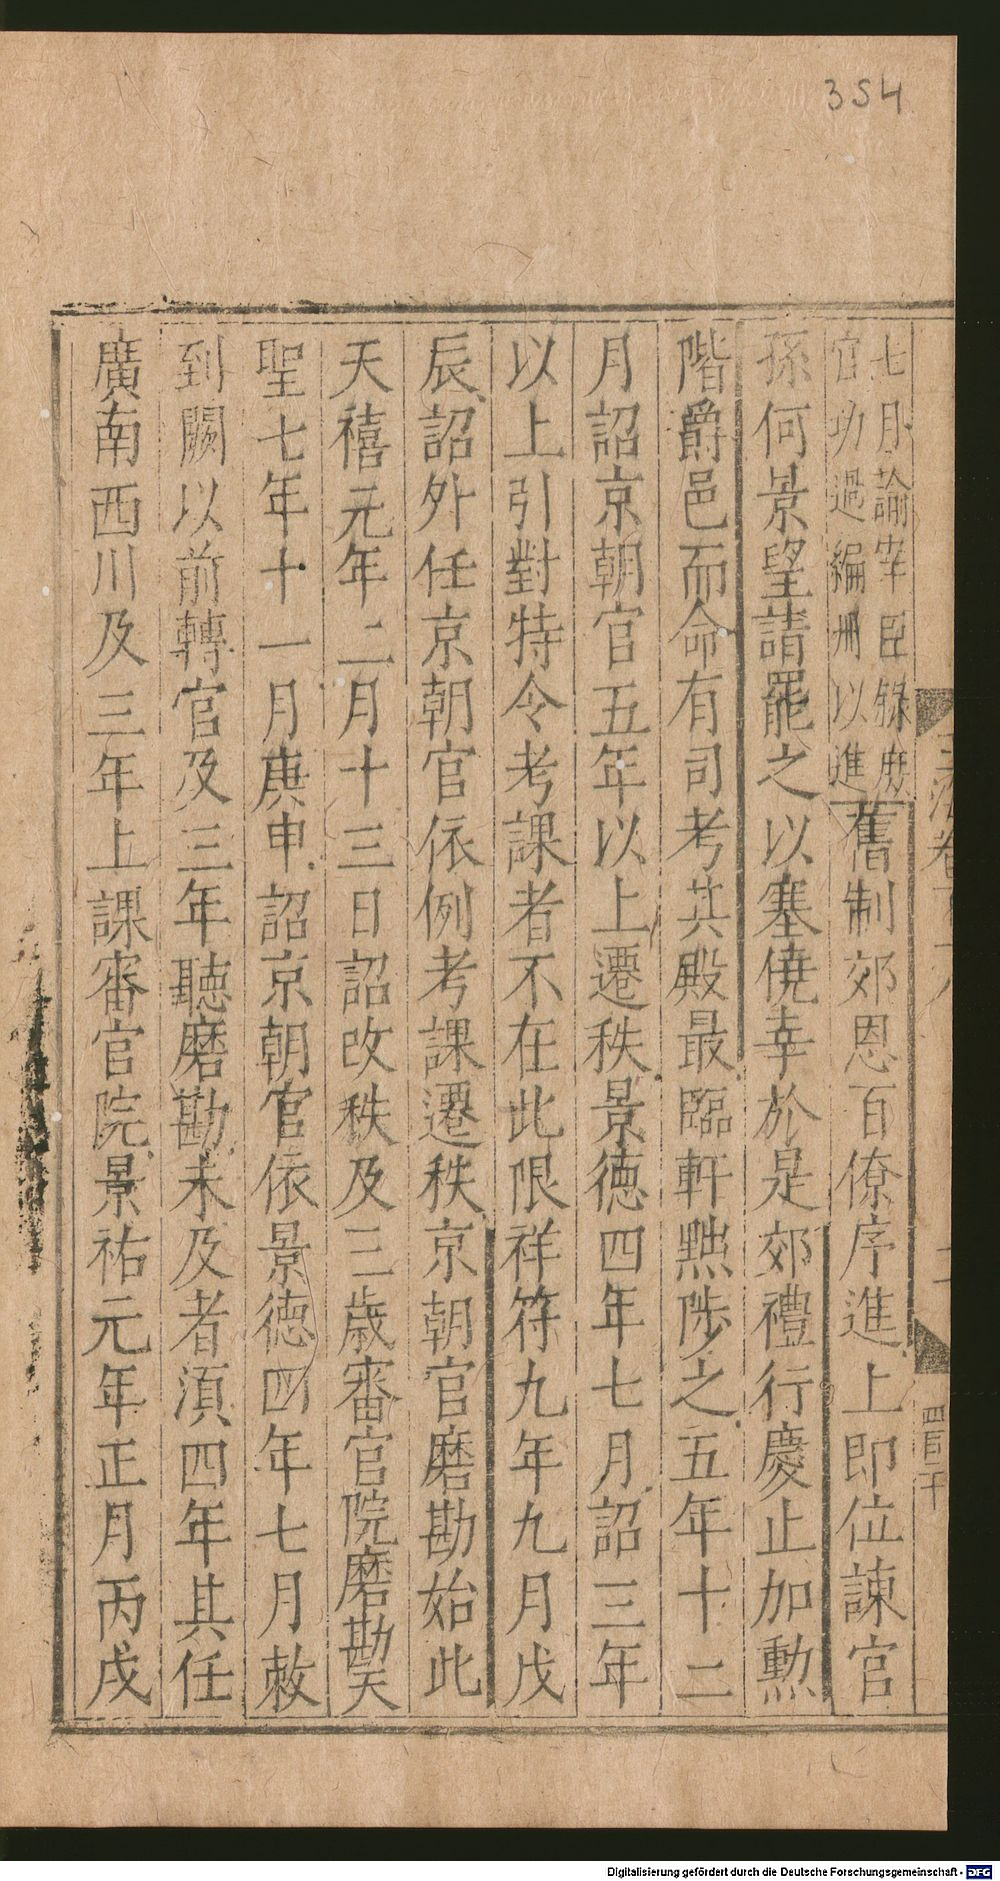 354
七月諭宰臣錄庶
官功過編冊以進
舊制郊恩百僚序進上即位諫官
孫何景望請罷之以塞僥幸於是郊禮行慶止加勲
階爵邑而命有司考其殿最臨軒黜陟之五年十二
月詔京朝官五年以上遷秩景德四年七月詔三年
以上引對特令考課者不在此限祥符九年九月戊
辰詔外任京朝官依例考課遷秩京朝官磨勘始此
天禧元年二月十三日詔改秩及三歲審官院磨勘天
聖七年十一月庚申詔京朝官依景德四年七月敕
到闕以前轉官及三年聽磨勘未及者湏四年其任
廣南西川及三年上課審官院景祐元年正月丙戌
Digitalisierung gefördert durch die Deutsche Forschungsgemeinschaft - DFG